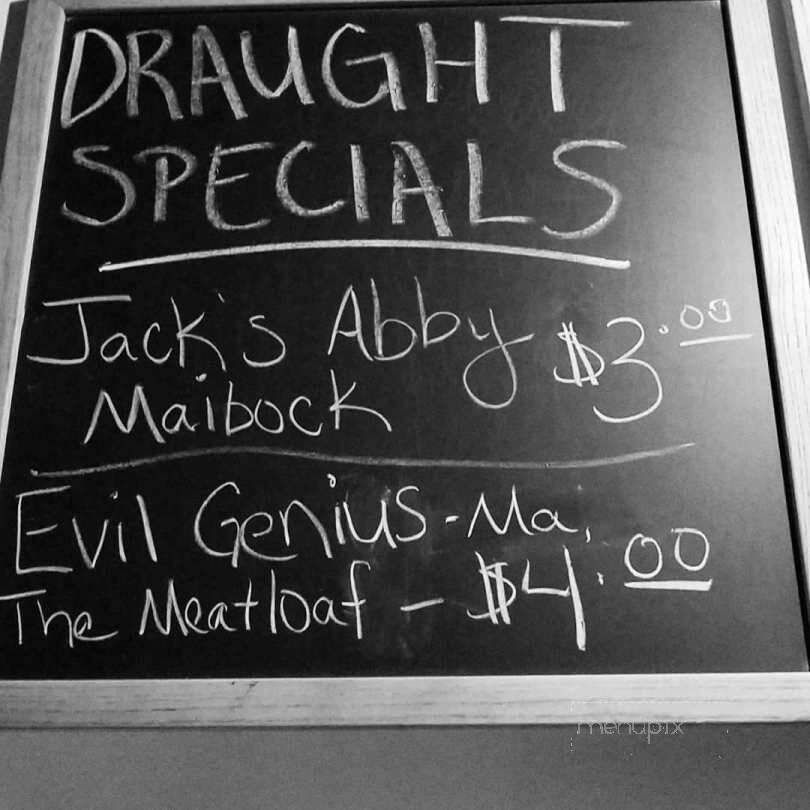 DRAUGHT
SPECIALS
Jack's Abby $3.00
Maibock
Evil Genius - Ma,
The Meatloaf - $4.00
menupix